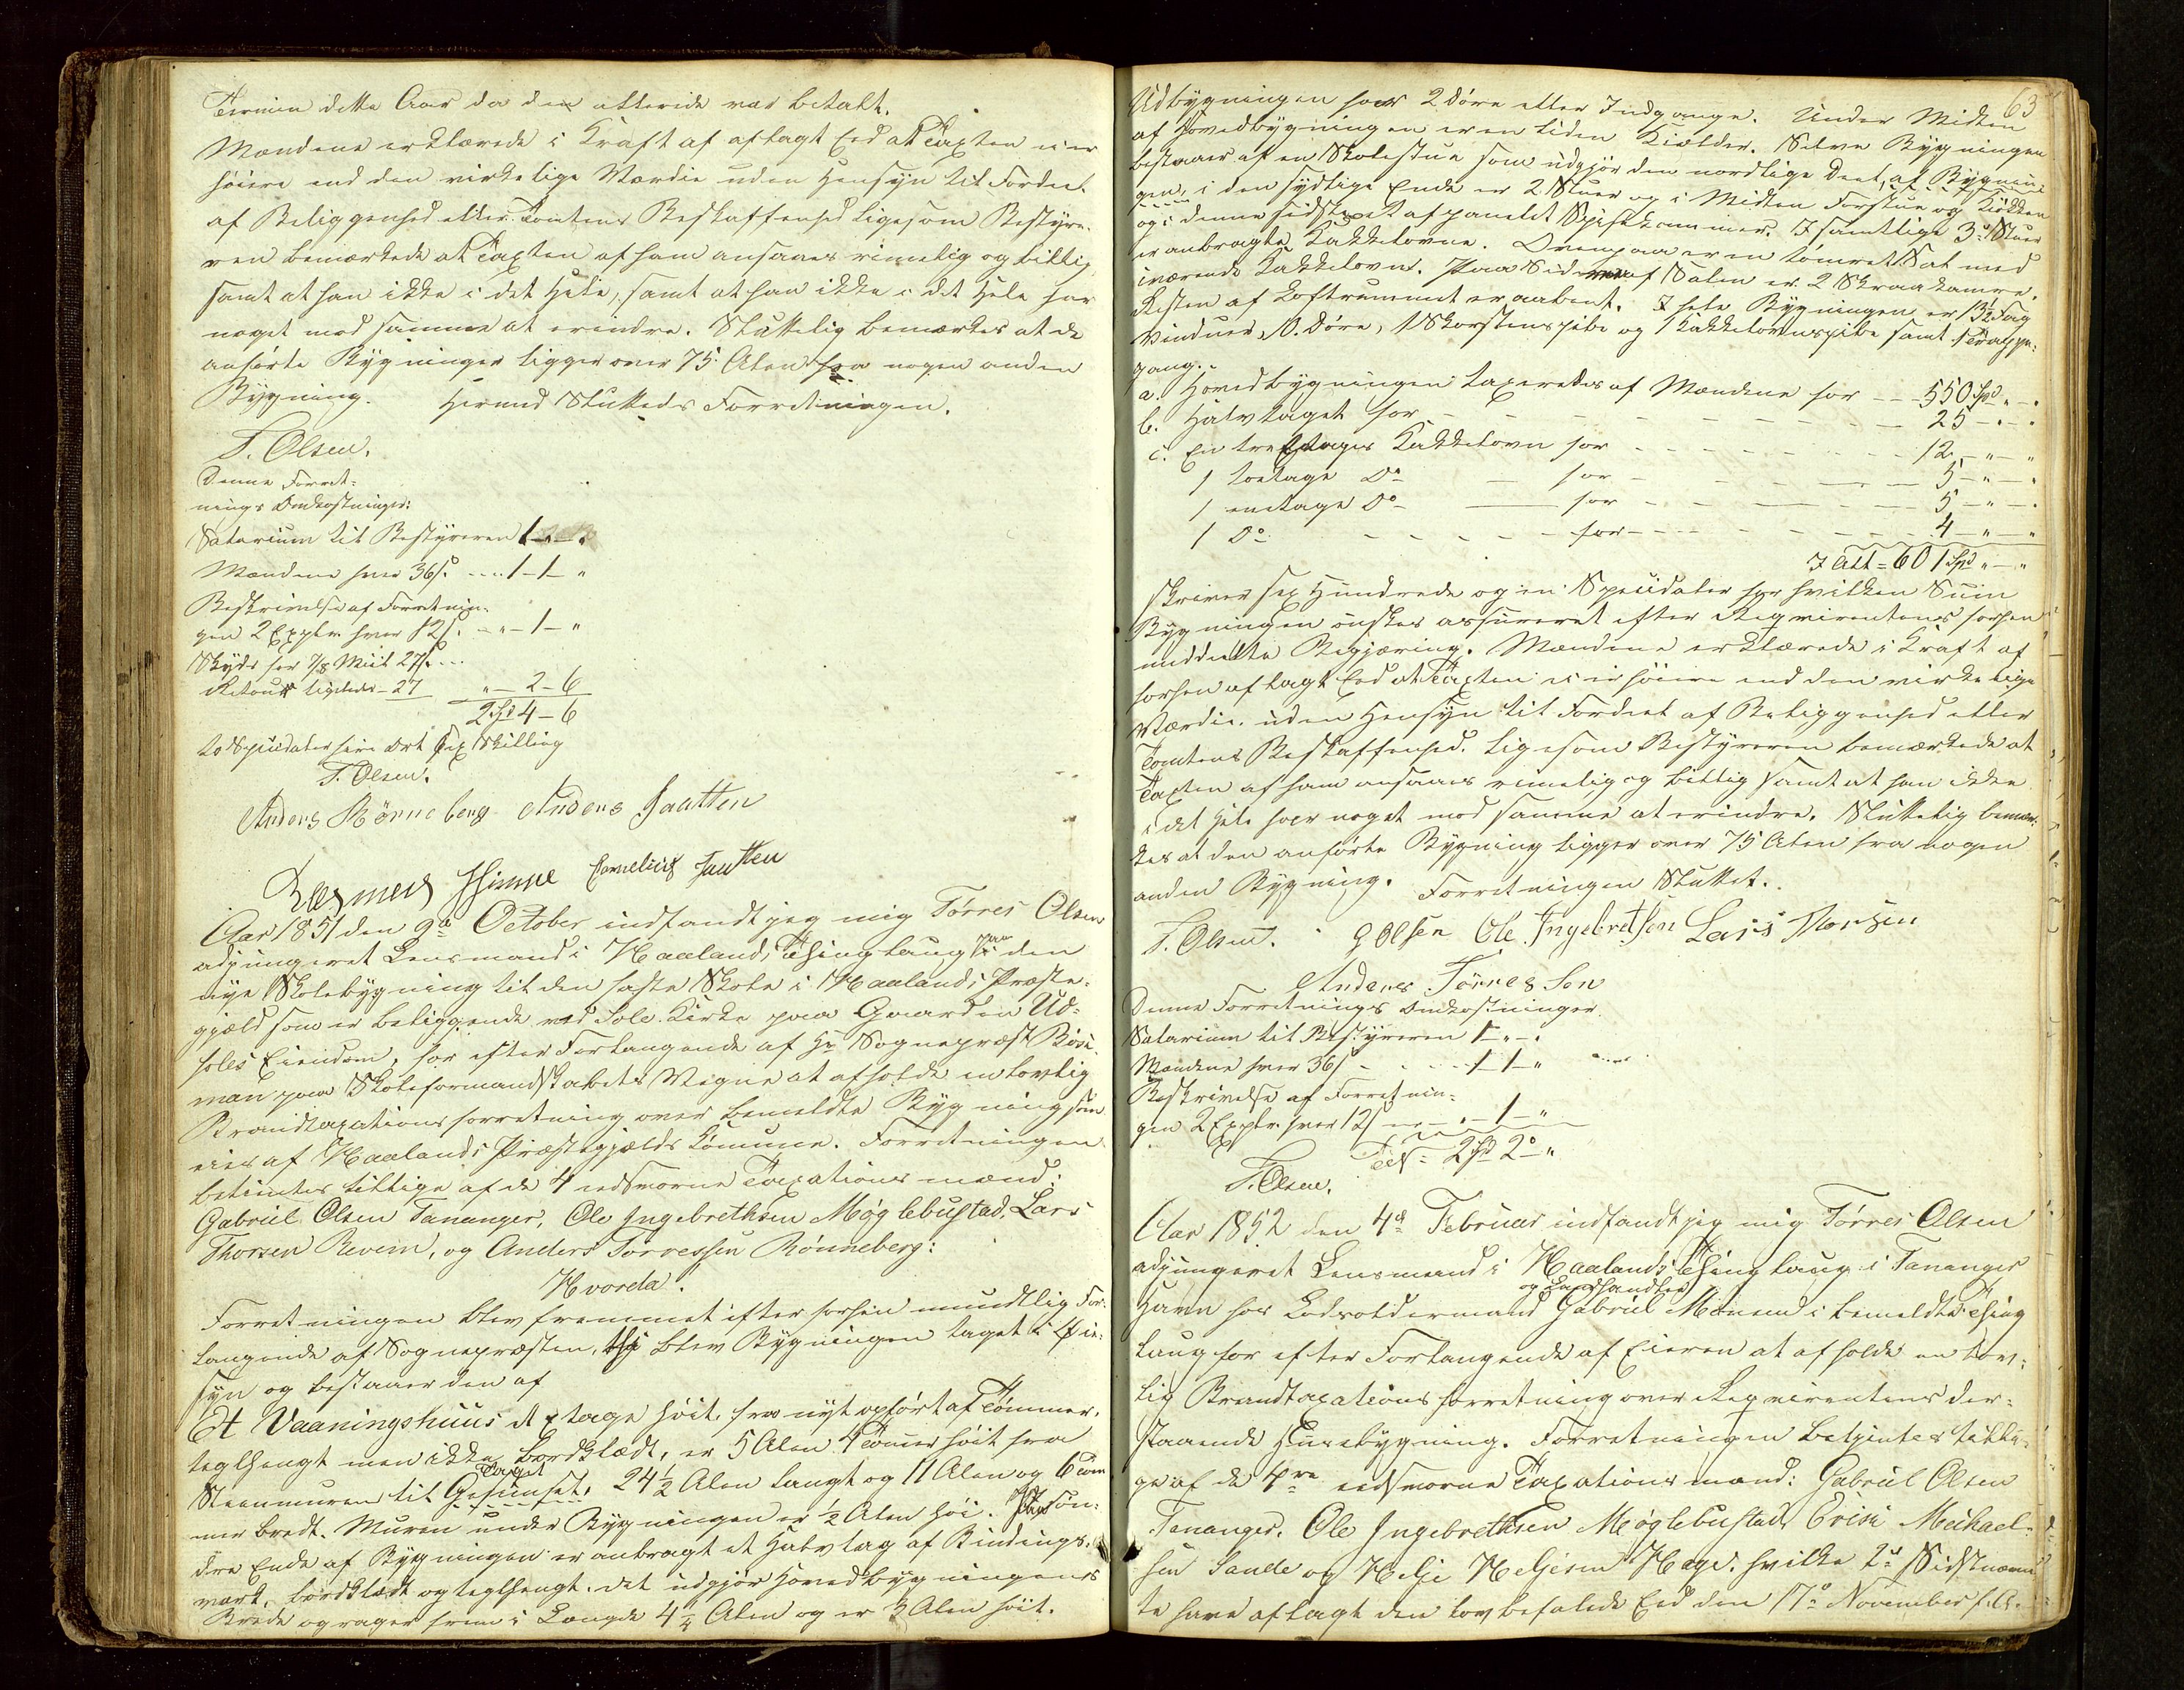 Termin dette Aar da den allerede var betalt.
Mændene erklærede i Kraft af aflagt Eed at Taxten ei er
høiere end den virkelige Værdie uden Hensyn til Fordeel
af Beliggenhed eller Tomtens Beskaffenhed ligesom Bestyre-
ren bemærkede at Taxten af ham ansaaes rimelig og billig
samt at han ikke i det Hele, samt at han ikke i det Hele har
noget mod samme at erindre. Sluttelig bemærkes at de
anførte Bygninger ligger over 75 Alen fra nogen anden
Bygning. Hermed Sluttedes Forretningen.
T. Olsen.
Denne Forret-
nings Omkostninger:
Salarium til Bestyreren 1 - " - "
Mændene hver 36 s. .... 1 - 1 - "
Beskrivelse af Forretnin-
gen 2 Explr. hver 12 s. - " - 1 - "
Skyds for 7/8 Miil 27 s. ...
Retour ligeledes - 27 " - 2 - 6
2 Spd 4 - 6
to Speciedaler fire Ort sex Skilling
T. Olsen.
Anders Rønneberg Anders Jaatten
Rasmus Hinne Cornelius Jaatten
Aar 1851 den 9de October indfandt jeg mig Tørres Olsen
adjungeret Lensmand i Haalands Thinglaug paa den
nye Skolebygning til den faste Skole i Haalands Præste-
gjæld som er beliggende ved Sole Kirke paa Gaarden Ud-
soles Eiendom, for efter Forlangende af Hr Sognepræst
man paa Skoleformandskabets Vegne at afholde en lovlig
Brandtaxationsforretning over bemeldte Bygning som
eies af Haalands Præstegjælds Comune. Forretningen
betientes tillige af de 4 eedsvorne Taxations mænd:
Gabriel Olsen Tananger, Ole Ingebrethsen Møglebustad, Lars
Thorsen Reveim, og Anders Tørressen Rønneberg:
Hvorda.
Forretningen blev fremmet efter forhen mundtlig For-
langende af Sognepræsten, thi blev Bygningen taget i Øie-
syn og bestaaer den af
Et Vaaningshuus et Etage høit, fra nyt opført af Tømmer,
teglhængt men ikke bordklædt, er 5 Alen 4 Tommer høit fra
Steenmuren til Gesimset, Taget 24 1/2 Alen langt og 11 Alen og 6 Tom-
mer bredt. Muren under Bygningen er 1/2 Alen høi. Paa søn-
dre Ende af Bygningen er anbragt et Halvtag af Bindings-
værk, bordklædt og teglhængt. det udgjør Hovedbygningens
Brede og rager frem i Længde 4 1/4 Alen og er 3 Alen høit.
63
Udbygningen har 2 Døre eller Indgange. Under Midten
af Hovedbygningen er en liden Kielder. Selve Bygningen
bestaaer af en Skolestue som udgjør den nordlige Deel af Bygnin-
gen, i den sydlige Ende er 2 Stuer og i Midten Forstue og Kiøkken
og i denne sidste et afpanelet Spisekammer. I samtlige 3de Stuer
er anbragte Kakkelovne. Ovenpaa er en tømret Sal med
iværende Kakkelovn. Paa Siderne af Salen er 2 Skraakamre.
Resten af Loftrummet er aabent. I hele Bygningen er 13 1/2 Fag
Vinduer, 10 Døre, 1 Skorsteenspibe og 1 Kakkelovnspibe samt 1 Trappe-
gang.
a. Hovedbygningen taxeredes af Mændene for - - - 550 Spd " - "
b. Halvtaget for - - - - - 25 - " - "
c. En tre Etages Kakkelovn for - - - - 12 - " - "
1 toetage Do - for - - - - 5 - " - "
1 enetage Do - for - - - - 5 - " - "
1 Do - - - - for - - - - 4 - " - "
I Alt = 601 Spd " - "
skriver sex Hundrede og en Speciedaler for hvilken Sum
Bygningen ønskes assureret efter Reqvirentens forhen
meddeelte Begjæring. Mændene erklærede i Kraft af
forhen aflagt Eed at Taxten ei er høiere end den virkelige
Værdie uden Hensyn til Fordeel af Beliggenhed eller
Tomtens Beskaffenhed. Ligesom Bestyreren bemærkede at
Taxten af ham ansaaes rimelig og billig samt at han ikke
i det Hele har noget mod samme at erindre. Sluttelig bemær-
kes at den anførte Bygning ligger over 75 Alen fra nogen
anden Bygning. Forretningen Sluttet.
T. Olsen. G Olsen Ole Ingebretsen Lars Thorsen
Anders Tørresen
Denne Forretnings Omkostninger.
Salarium til Bestyreren 1 - " - "
Mændene hver 36 s - - - 1 - 1 - "
Beskrivelse af Forretnin-
gen 2 Explr. hver 12 s - " - 1 - "
Tils. = 2 Spd 2 - "
T. Olsen.
Aar 1852 den 4de Februar indfandt jeg mig Tørres Olsen
adjungeret Lensmand i Haalands Thinglaug i Tananger
Havn hos Lodsoldermand og Landhandler Gabriel Monsen i bemeldte Thing
laug for efter Forlangende af Eieren at afholde en lov-
lig Brandtaxationsforretning over Reqvirentens der-
staaende Huusebygning. Forretningen betjentes tilli-
ge af de 4re eedsvorne Taxations mænd: Gabriel Olsen
Tananger, Ole Ingebrethsen Møglebustad, Erik Michael-
sen Sande og Helje Heljesen Hage, hvilke 2de Sidstnævn
te have aflagt den lovbefalede Eed den 17de November f. A.